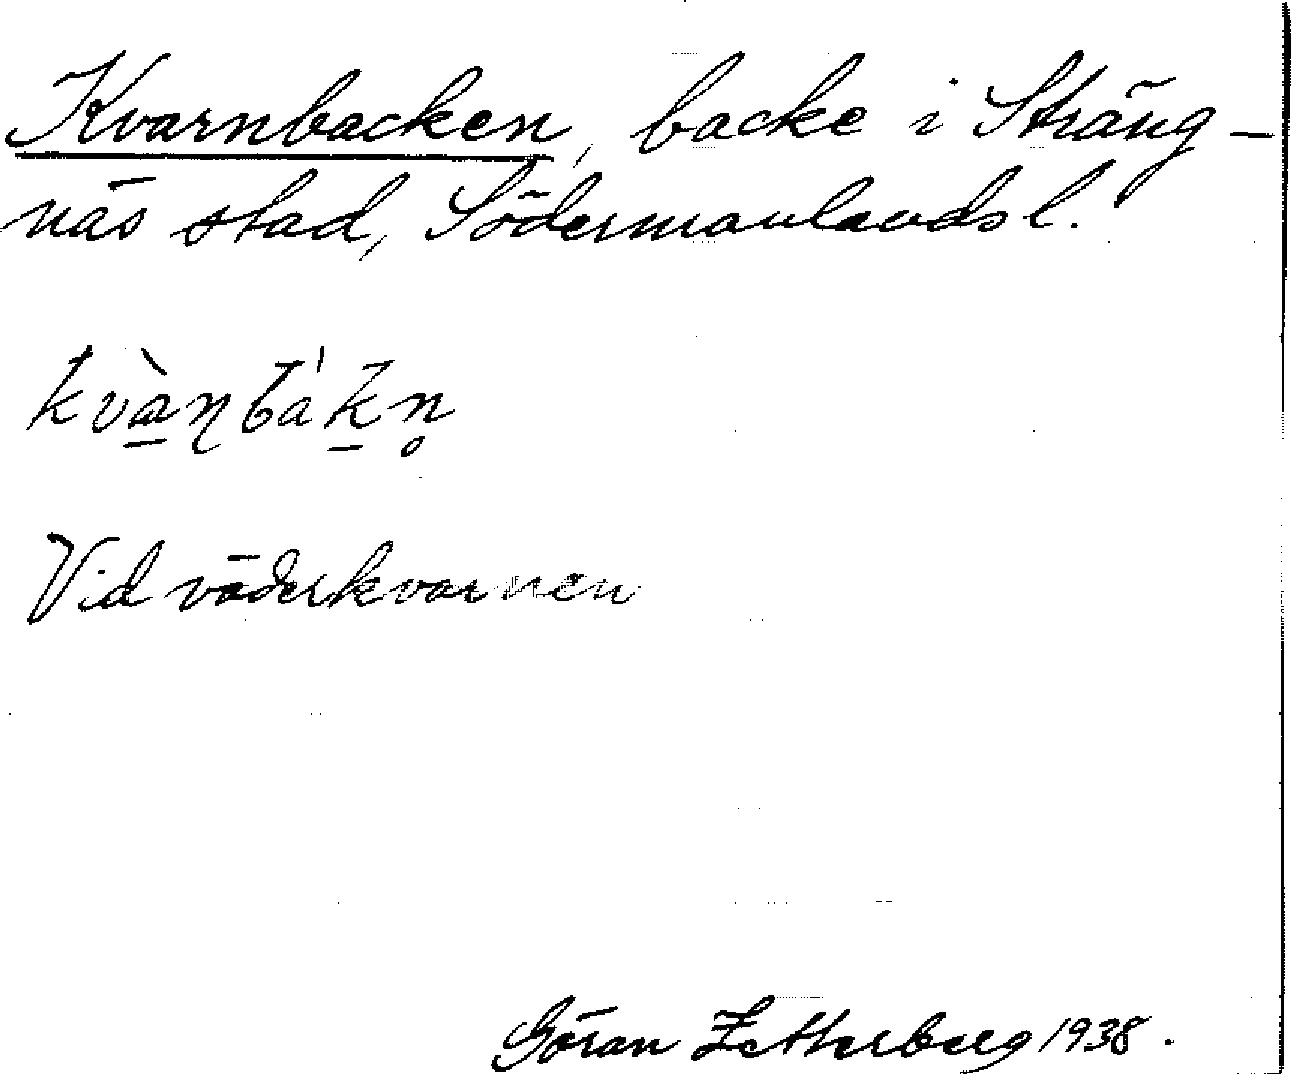 Kvarnbacken, backe i Sträng-
näs stad, Södermanlands l.
kvàṇbá'kn̥
Vid väderkvarnen
Göran Zetterberg 1938.